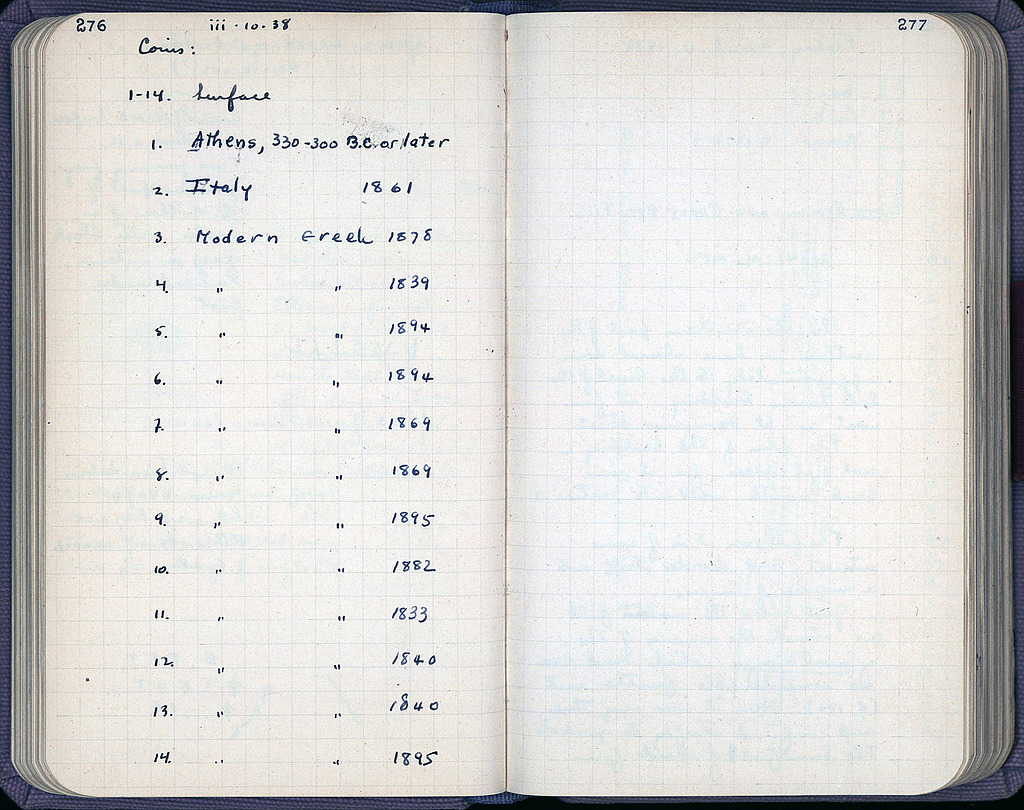 276
iii · 10 · 38
Coins:
1-14. Surface
1. Athens, 330-300 B.C. or later
2. Italy 1861
3. Modern Greek 1878
4. " " 1839
5. " " 1894
6. " " 1894
7. " " 1869
8. " " 1869
9. " " 1895
10. " " 1882
11. " " 1833
12. " " 1840
13. " " 1840
14. " " 1895
277